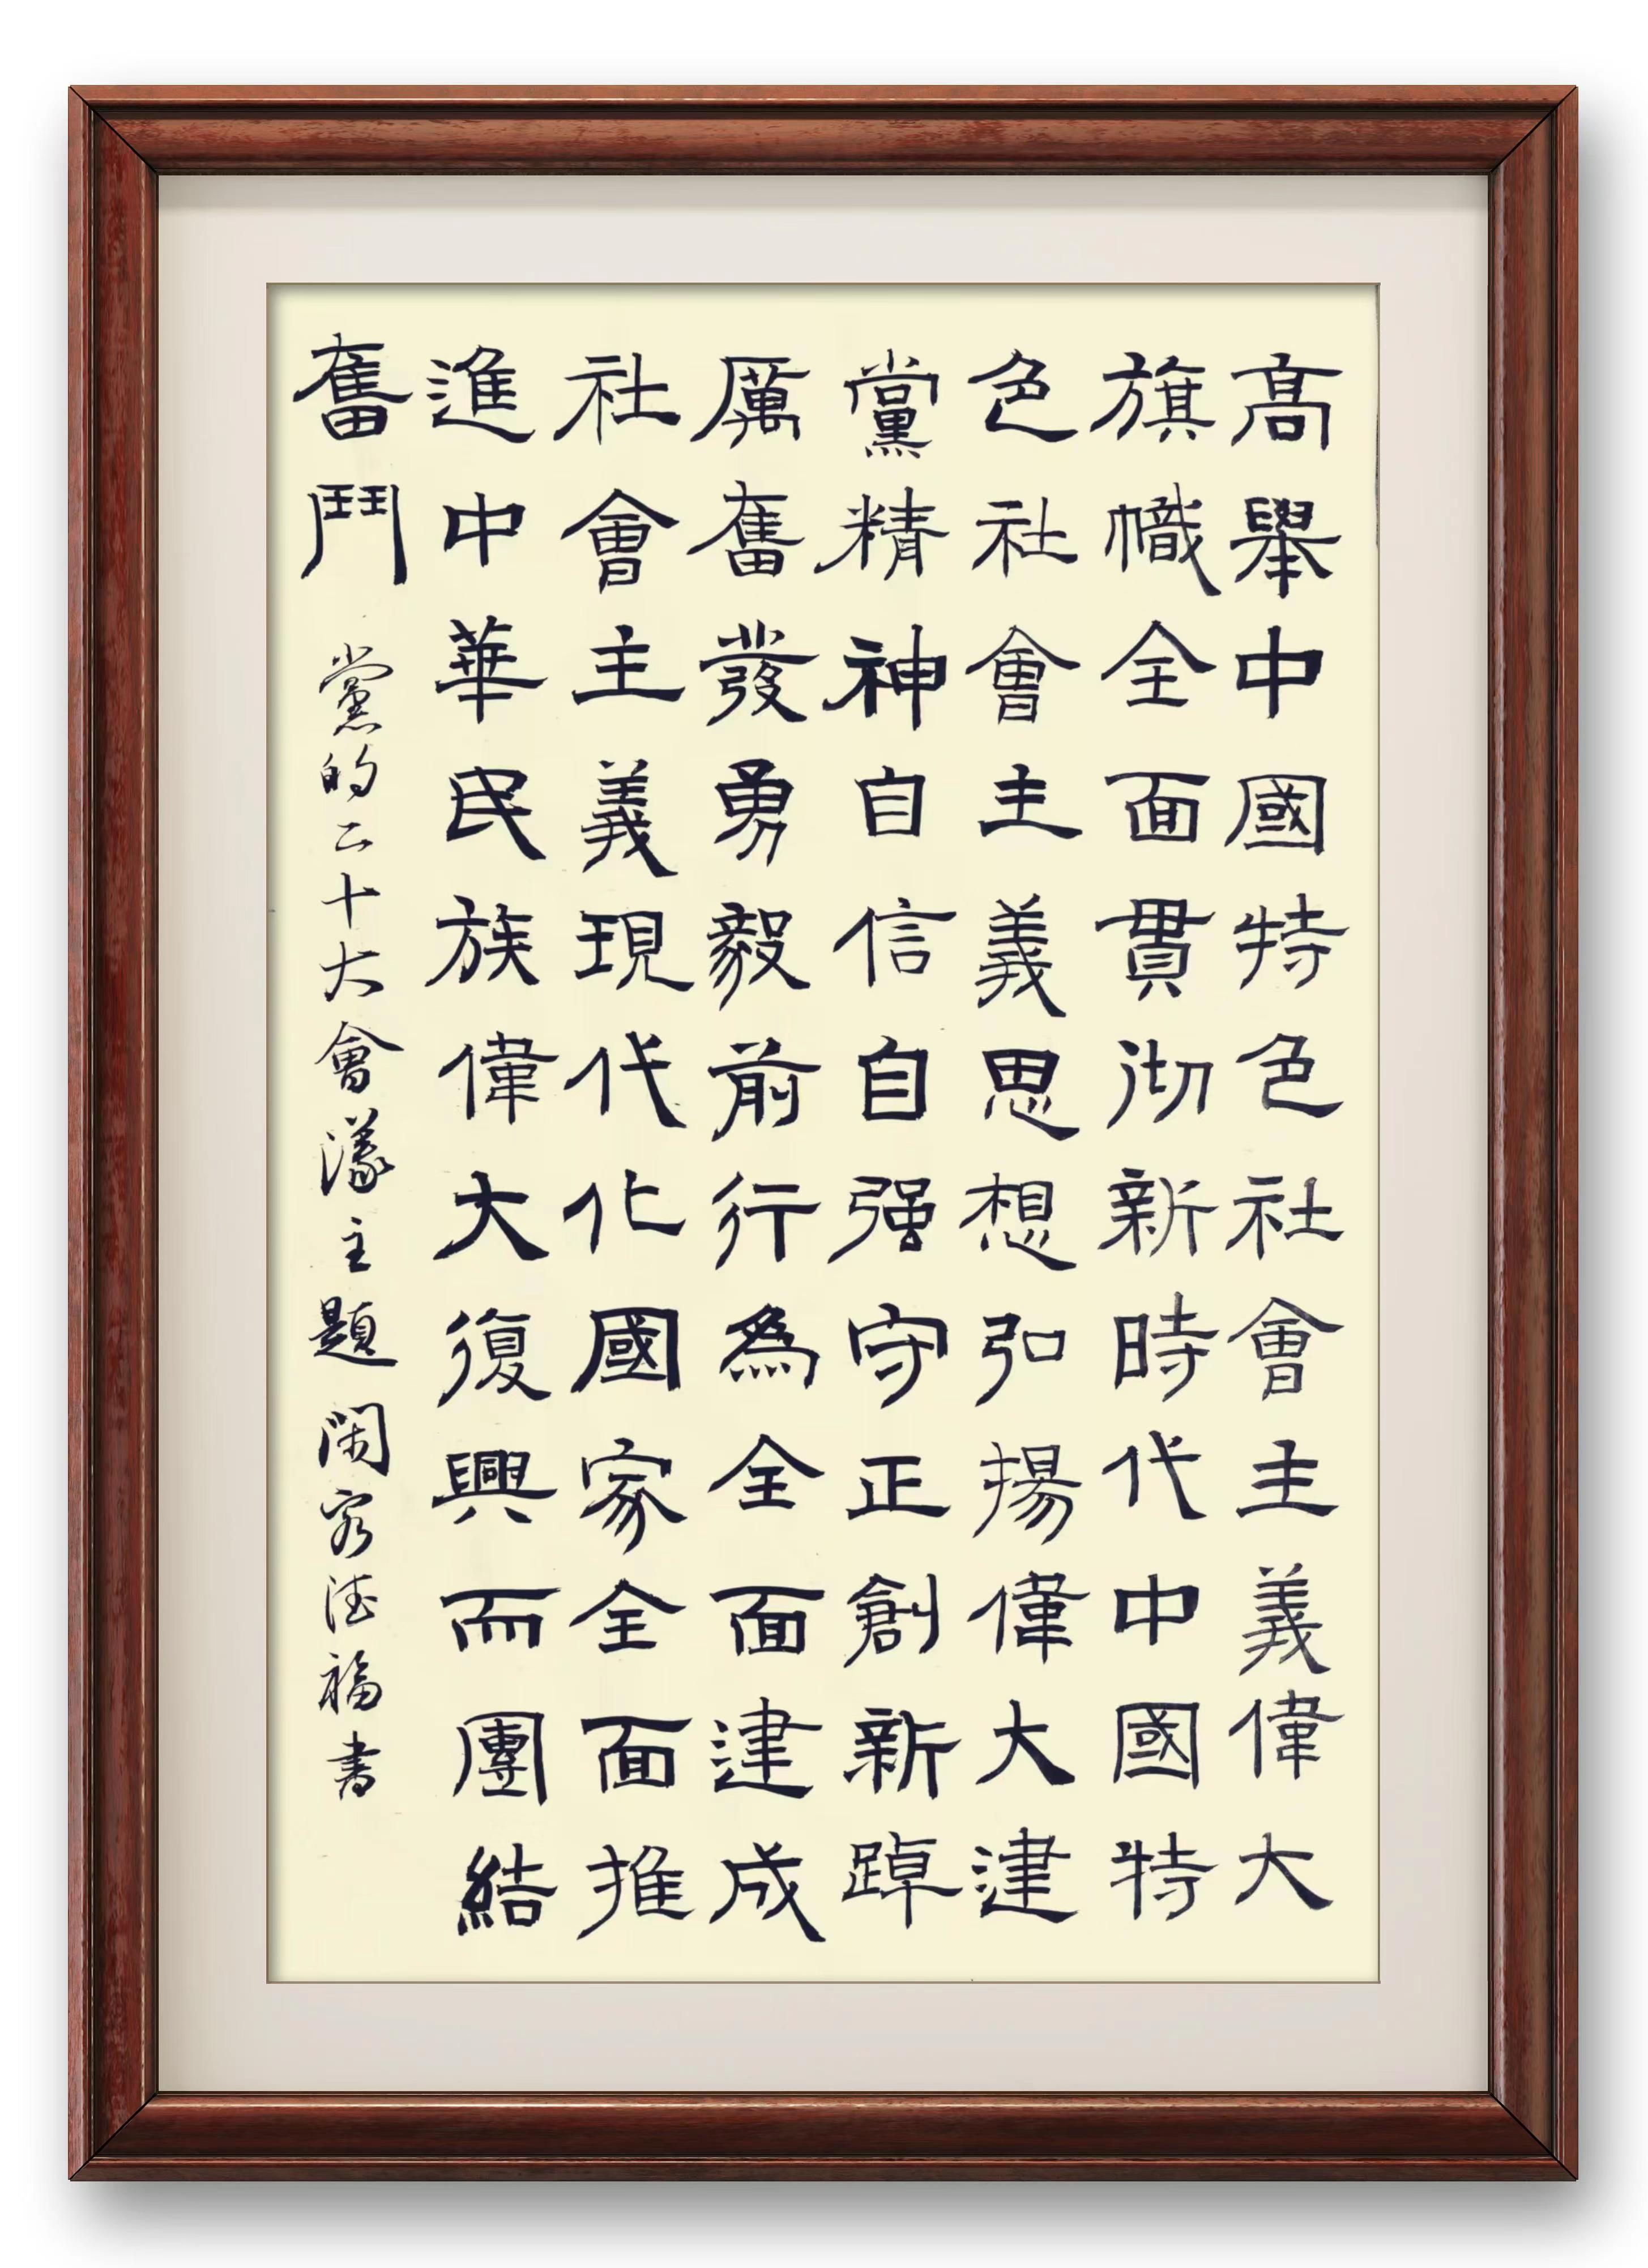 高舉中國特色社會主義偉大
旗幟全面貫沏新時代中國特
色社會主義思想弘揚偉大建
黨精神自信自强守正創新踔
厲奮發勇毅前行為全面建成
社會主義現代化國家全面推
進中華民族偉大復興而團結
奮鬥
黨的二十大會議主題 閑客德福書